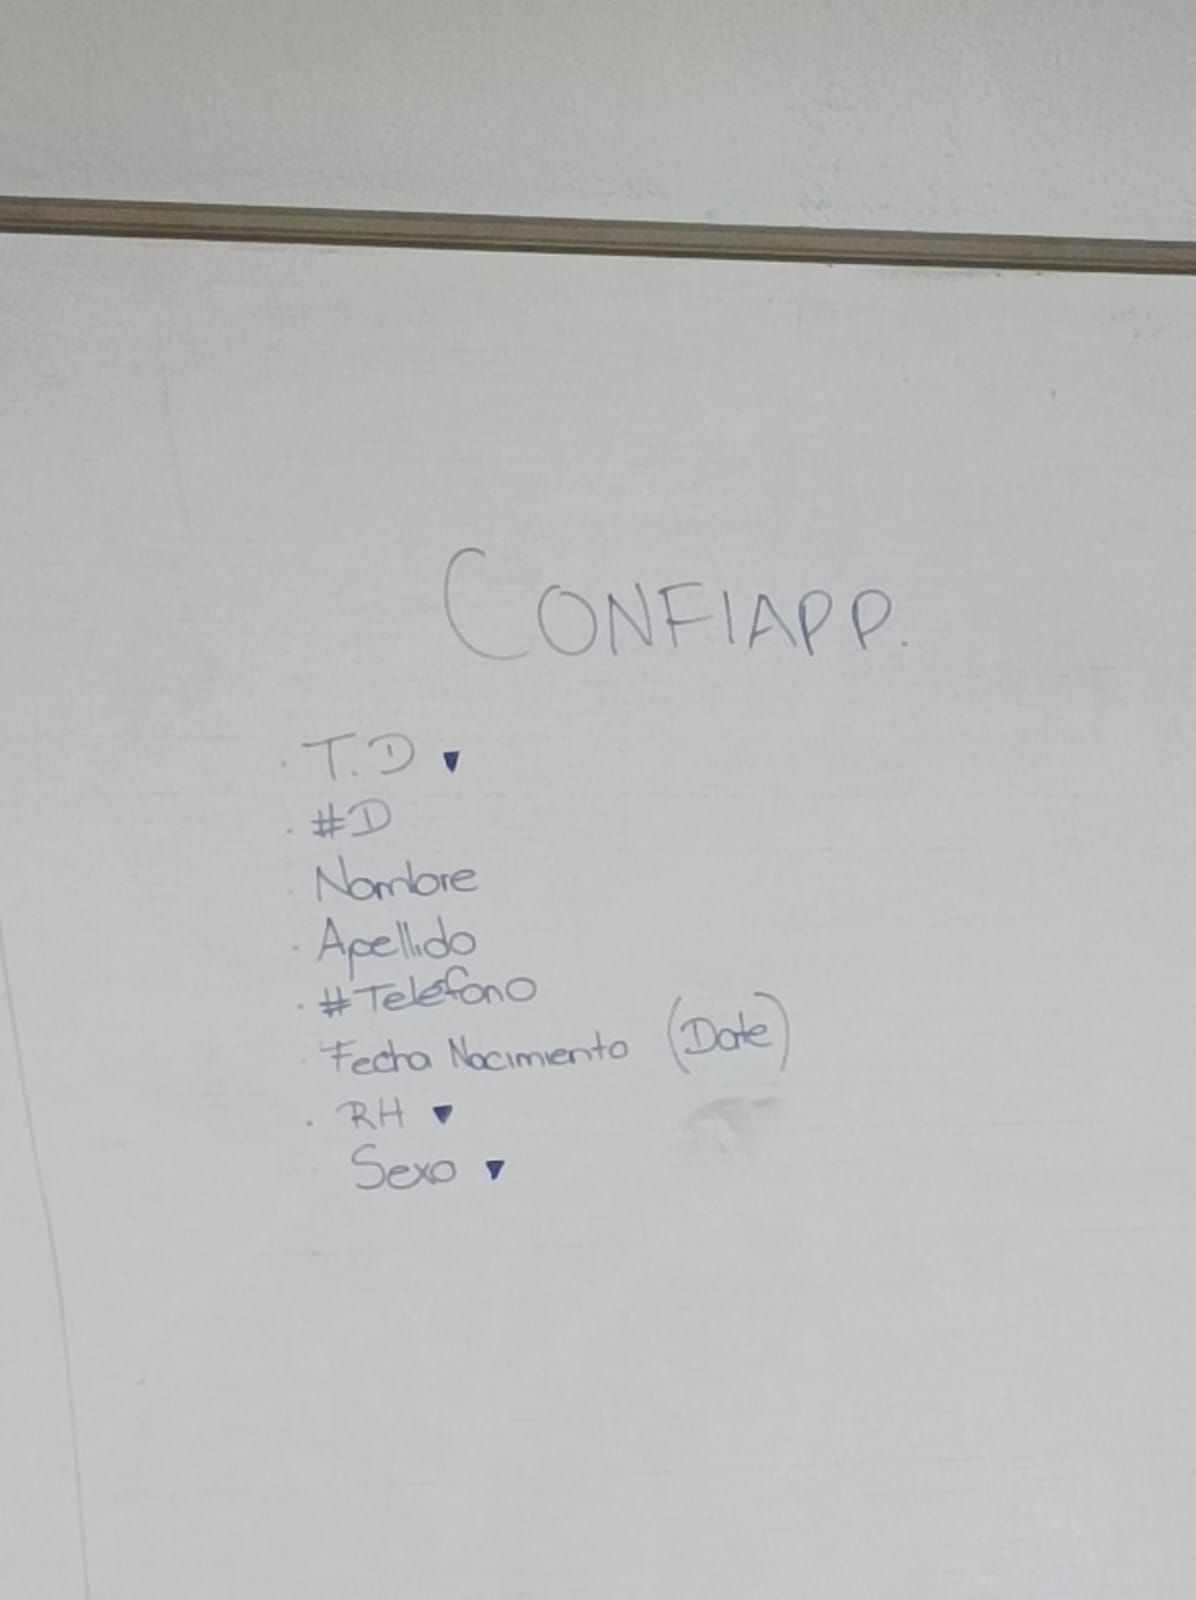 CONFIAPP.
· T.D ▼
· #D
· Nombre
· Apellido
· #Teléfono
· Fecha Nacimiento (Date)
· RH ▼
· Sexo ▼